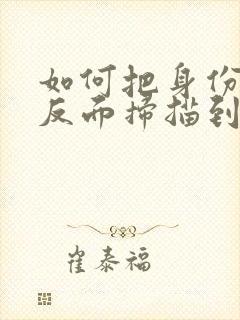 如何把身份
反而扫描到
崔泰福